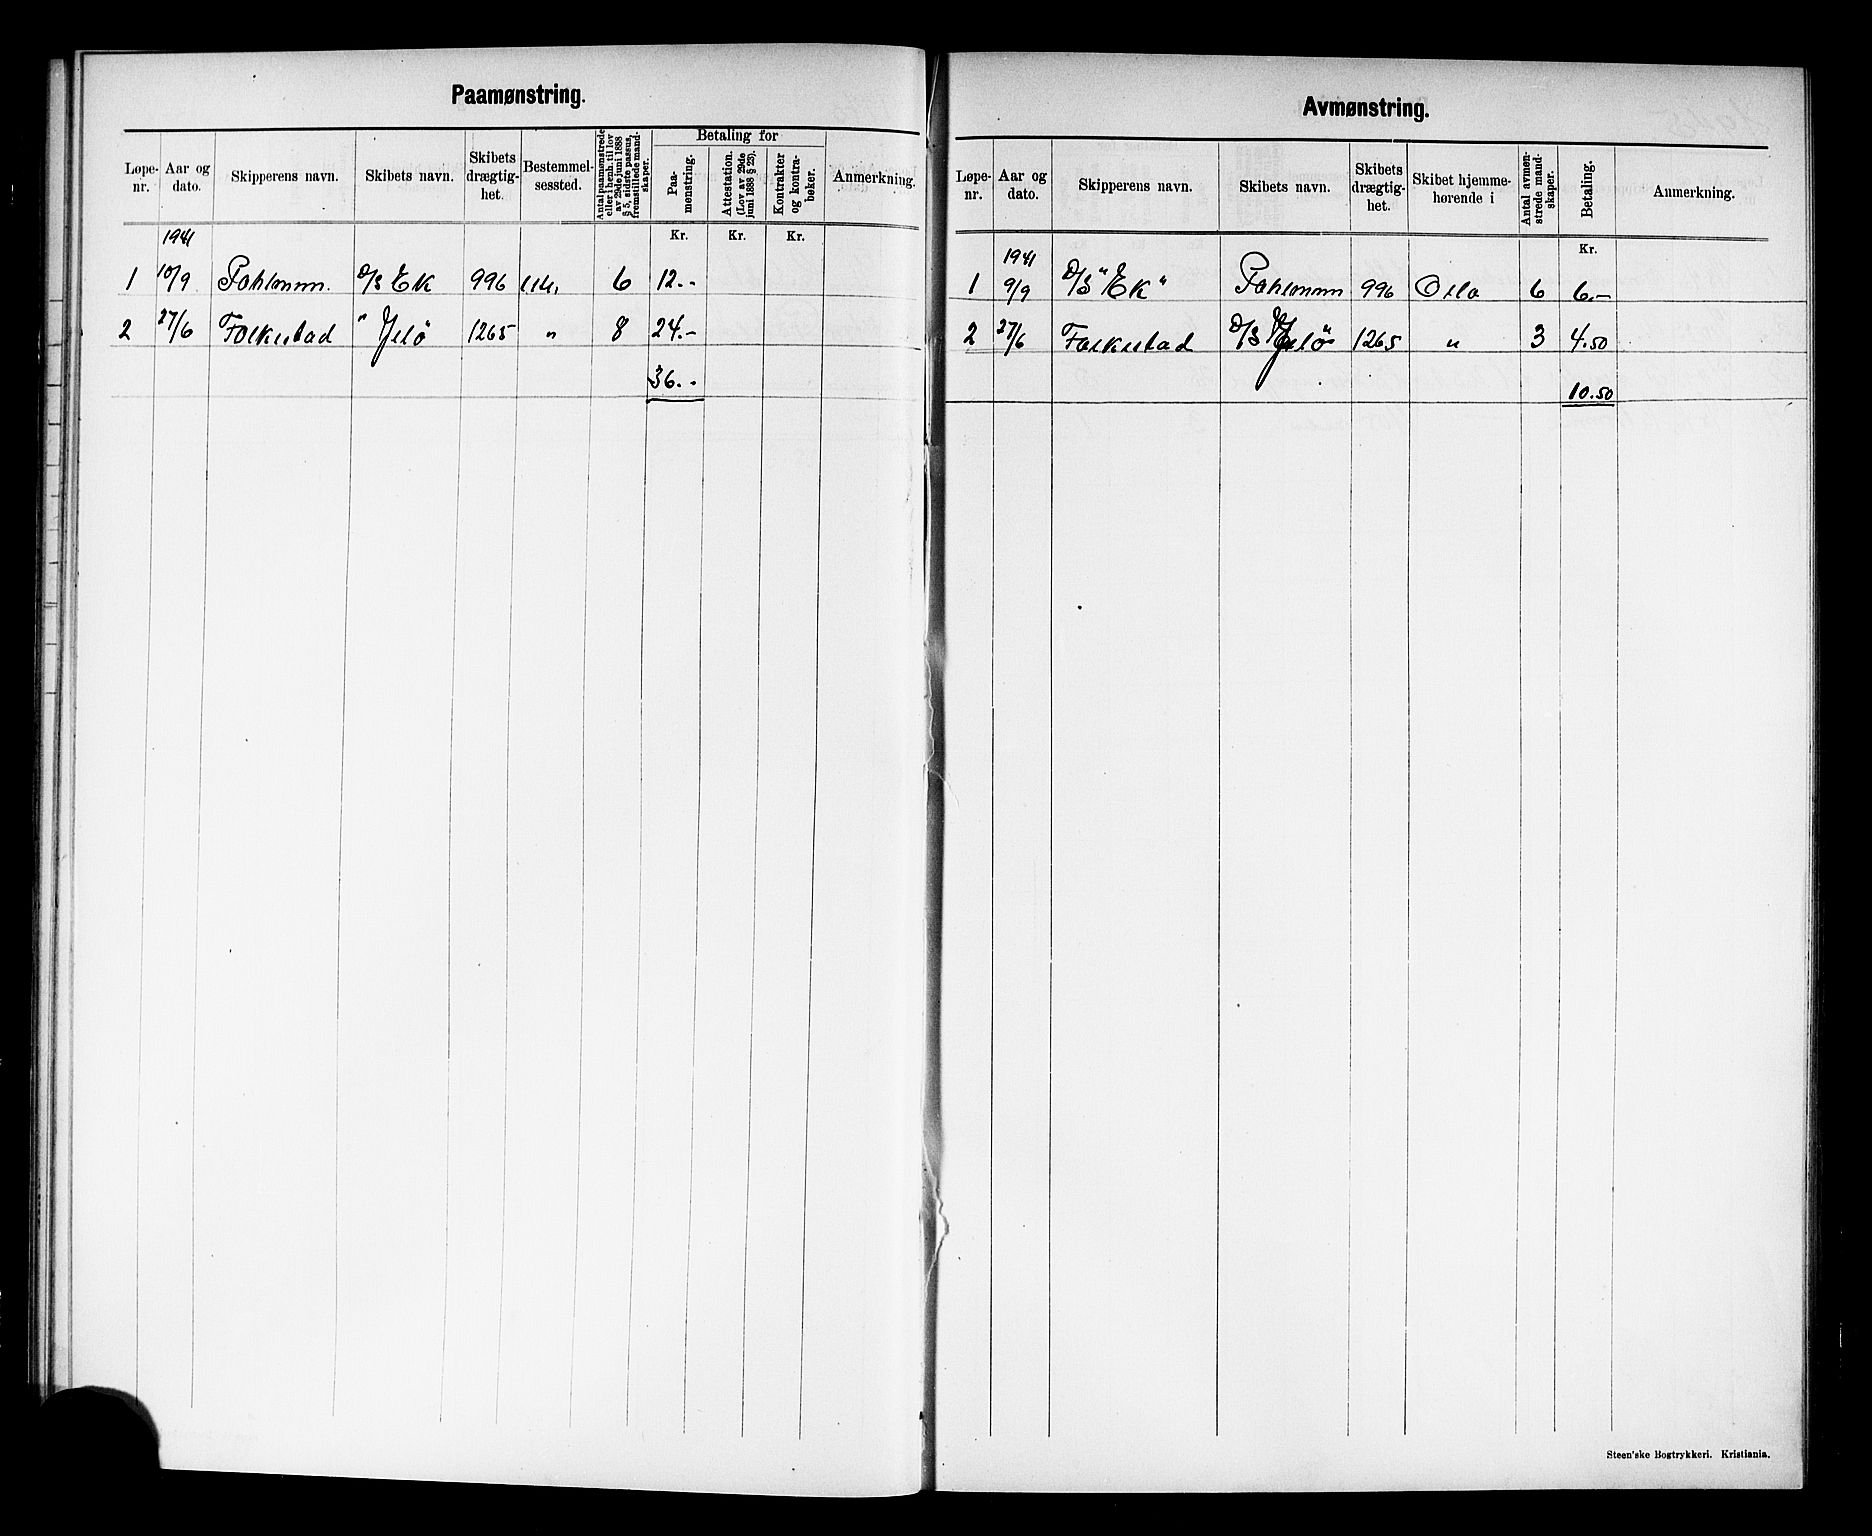 Paamønstring.
Løpe-nr. Aar og dato. Skipperens navn. Skibets navn. Skibets drægtig-het. Bestemmel-sessted. Antal paamønstrede eller i henh. til lov av 29de juni 1888 § 5, sidste passus, fremstillede mand-skaper. Betaling for Paa-mønstring. Attestation. (Lov av 29de juni 1888 § 23). Kontrakter og kontra-bøker. Anmerkning.
1941 Kr. Kr. Kr.
1 10/9 D/S Ek 996 6 12.-
2 27/6 Folkestad " Jelö 1265 " 8 24.-
36.-
Avmønstring.
Løpe-nr. Aar og dato. Skipperens navn. Skibets navn. Skibets drægtig-het. Skibet hjemme-hørende i Antal avmøn-strede mand-skaper. Betaling. Anmerkning.
1941 Kr.
1 9/9 D/S "Ek" 996 Oslo 6 6.-
2 27/6 Folkestad D/S Jelö" 1265 " 3 4.50
10.50
Steen'ske Bogtrykkeri. Kristiania.